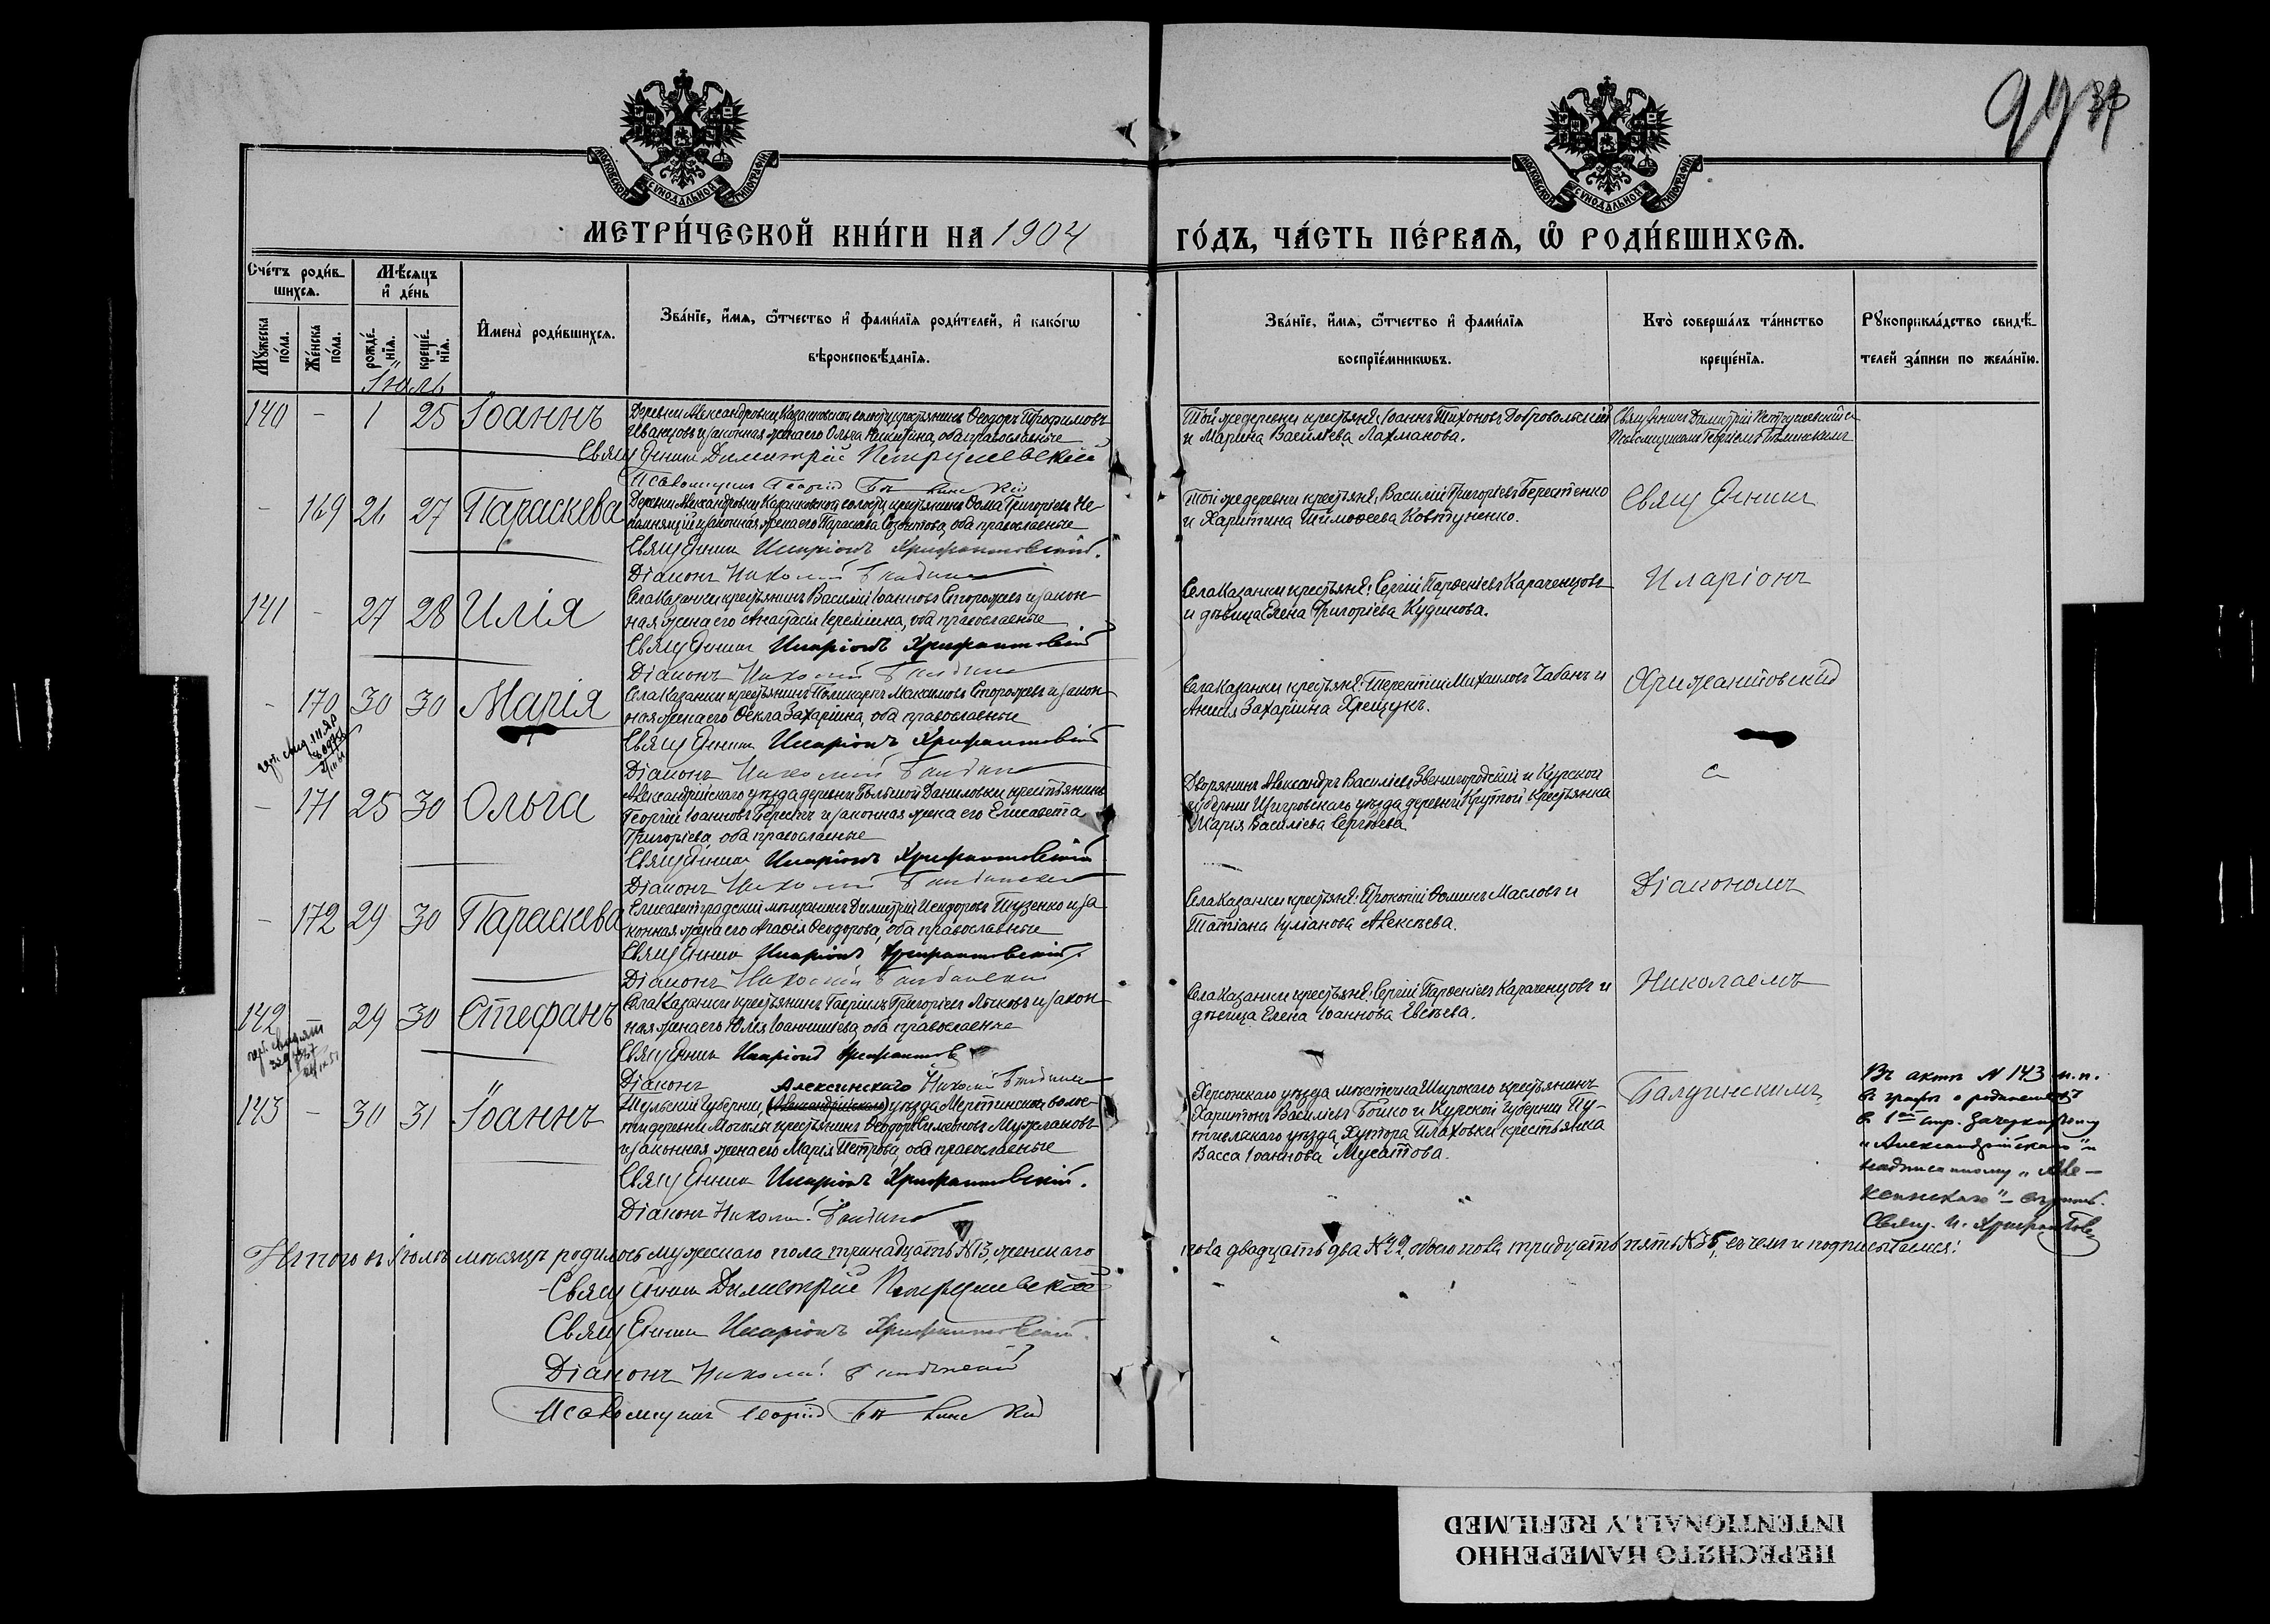 97 37
МОСКОВСКОЙ СѴНОДАЛЬНОЙ ТИПОГРАФІИ
МОСКОВСКОЙ СѴНОДАЛЬНОЙ ТИПОГРАФІИ
МЕТРИ́ЧЕСКОЙ КНИ́ГИ НА 1904
ГО́ДЪ, ЧА́СТЬ ПЕ́РВАѦ, Ѡ҆ РОДИ́ВШИХСѦ.
Сче́тъ роди́в-
шихсѧ.
Мꙋ́жеска по́ла.
Же́нска по́ла.
Мѣ́сѧцъ
и҆ де́нь
рожде́-
нїѧ.
креще́-
нїѧ.
И҆мена̀ роди́вшихсѧ.
Зва́нїе, и҆́мѧ, ѻ҆́тчество и҆ фами́лїѧ роди́телей, и҆ како́гѡ
вѣроисповѣ́данїѧ.
Зва́нїе, и҆́мѧ, ѻ҆́тчество и҆ фами́лїѧ
воспрїе́мникѡвъ.
Кто̀ соверша́лъ та́инство
креще́нїѧ.
Рꙋкоприкла́дство свидѣ́-
телей за́писи по жела́нїю.
Іюль
140 - 1 25 Іоаннъ
Деревни Александровки Казанковской волости крестьянинъ Ѳеодоръ Трофимовъ
Иванцовъ и законная жена его Ольга Никитина, оба православные
Священникъ Димитрій Петрушевскій
Псаломщикъ Георгій
Той же деревни крестьяне: Іоаннъ Тихоновъ Добровольскій
и Марина Васильева Лахманова.
Священникъ Димитрій Петрушевскій съ
Псаломщикомъ Георгіемъ
- 169 26 27 Параскева
Деревни Александровки Казанковской волости крестьянинъ Ѳома Григорьевъ Не-
и законная жена его Параскева Созонтова, оба православные
Священникъ Иларіонъ Хрисанѳовскій.
Діаконъ Николай
Той же деревни крестьяне: Василій Григорьевъ Берестенко
и Харитина Тимоѳеева Ковтуненко.
Священникъ
141 - 27 28 Илія
Села Казанки крестьянинъ Василій Іоанновъ Сторожевъ и закон-
ная жена его Анастасія Іеремиина, оба православные
Священникъ Иларіонъ
Діаконъ Николай
Села Казанки крестьяне: Сергій Парѳеніевъ Караченцовъ
и дѣвица Елена Григоріева Кудинова.
Иларіонъ
- 170 30 30 Марія
Села Казанки крестьянинъ Поликарпъ Максимовъ Сторожевъ и закон-
ная жена его Ѳекла Захаріина, оба православные
Священникъ Иларіонъ
Діаконъ Николай
Села Казанки крестьяне: Терентій Михаиловъ Чабанъ и
Анисія Захаріина Хрещукъ.
- 171 25 30 Ольга
Александрійскаго уѣзда деревни Большой Даниловки крестьянинъ
Георгій Іоанновъ Берестъ и законная жена его Елисавета
Григоріева, оба православные
Священникъ Иларіонъ
Діаконъ Николай
Дворянинъ Александръ Васильевъ Звенигородскій и Курской
губерніи Щигровскаго уѣзда деревни Крутой крестьянка
Марія Василіева Сергѣева.
съ
- 172 29 30 Параскева
Елисаветградскій мѣщанинъ Димитрій Исидоровъ Тузенко и за
конная жена его Агаѳія Ѳеодорова, оба православные
Священникъ Иларіонъ
Діаконъ Николай
Села Казанки крестьяне: Прокопій Ѳоминъ Масловъ и
Татіана Іуліанова Алексѣева.
Діакономъ
142 29 30 Стефанъ
Села Казанки крестьянинъ Гавріилъ Григорьевъ Лысковъ и закон-
ная жена его Юлія Іоанникіева, оба православные
Священникъ Иларіонъ
Діаконъ Николай
Села Казанки крестьяне: Сергій Парѳеніевъ Караченцовъ и
дѣвица Елена Іоаннова Евсѣева.
Николаемъ
143 - 30 31 Іоаннъ
Алексинскаго
Тульской Губерніи, (Александрійскаго) уѣзда волос-
ти деревни Могилы крестьянинъ Ѳеодоръ Симеоновъ
и законная жена его Марія Петрова, оба православные
Священникъ Иларіонъ
Діаконъ Николай
Херсонскаго уѣзда мѣстечка Широкаго крестьянинъ
Харитонъ Васильевъ Бойко и Курской Губерніи Пу-
тивльскаго уѣзда, Хутора Плаховки крестьянка
Васса Іоаннова Мусатова.
Въ актѣ № 143 м. п.
въ графѣ о родителяхъ
в 1ой стр. зачеркнутому
„Александрійскаго" и
надписанному „Але-
ксинскаго" – вѣрить.
Свящ. И.
Итого въ Іюлѣ мѣсяцѣ родилось мужескаго пола тринадцать №13, женскаго
пола двадцать два №22, обоего пола тридцать пять №35, въ чемъ и подписываемся:
Священникъ Димитрій Петрушевскій
Священникъ Иларіонъ
Діаконъ Николай
Псаломщикъ Георгій
ПЕРЕСНЯТО НАМЕРЕННО
INTENTIONALLY REFILMED